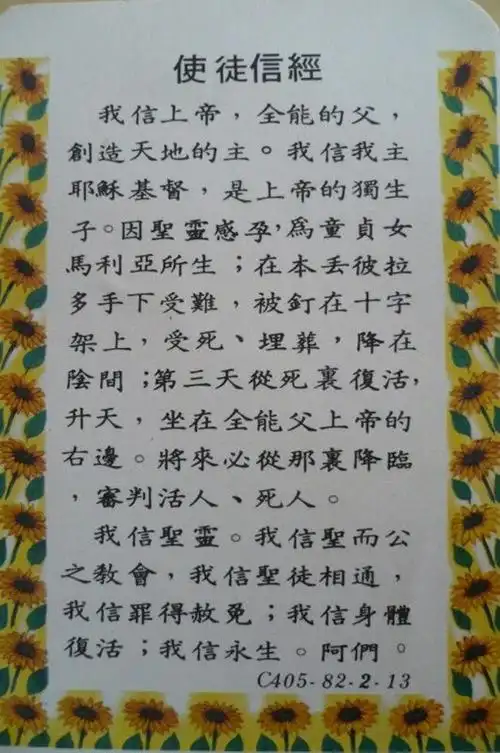 使徒信經
我信上帝，全能的父，
創造天地的主。我信我主
耶穌基督，是上帝的獨生
子。因聖靈感孕，為童貞女
馬利亞所生；在本丟彼拉
多手下受難，被釘在十字
架上，受死、埋葬，降在
陰間；第三天從死裏復活，
升天，坐在全能父上帝的
右邊。將來必從那裏降臨
，審判活人、死人。
我信聖靈。我信聖而公
之教會，我信聖徒相通，
我信罪得赦免；我信身體
復活；我信永生。阿們。
C405-82-2-13